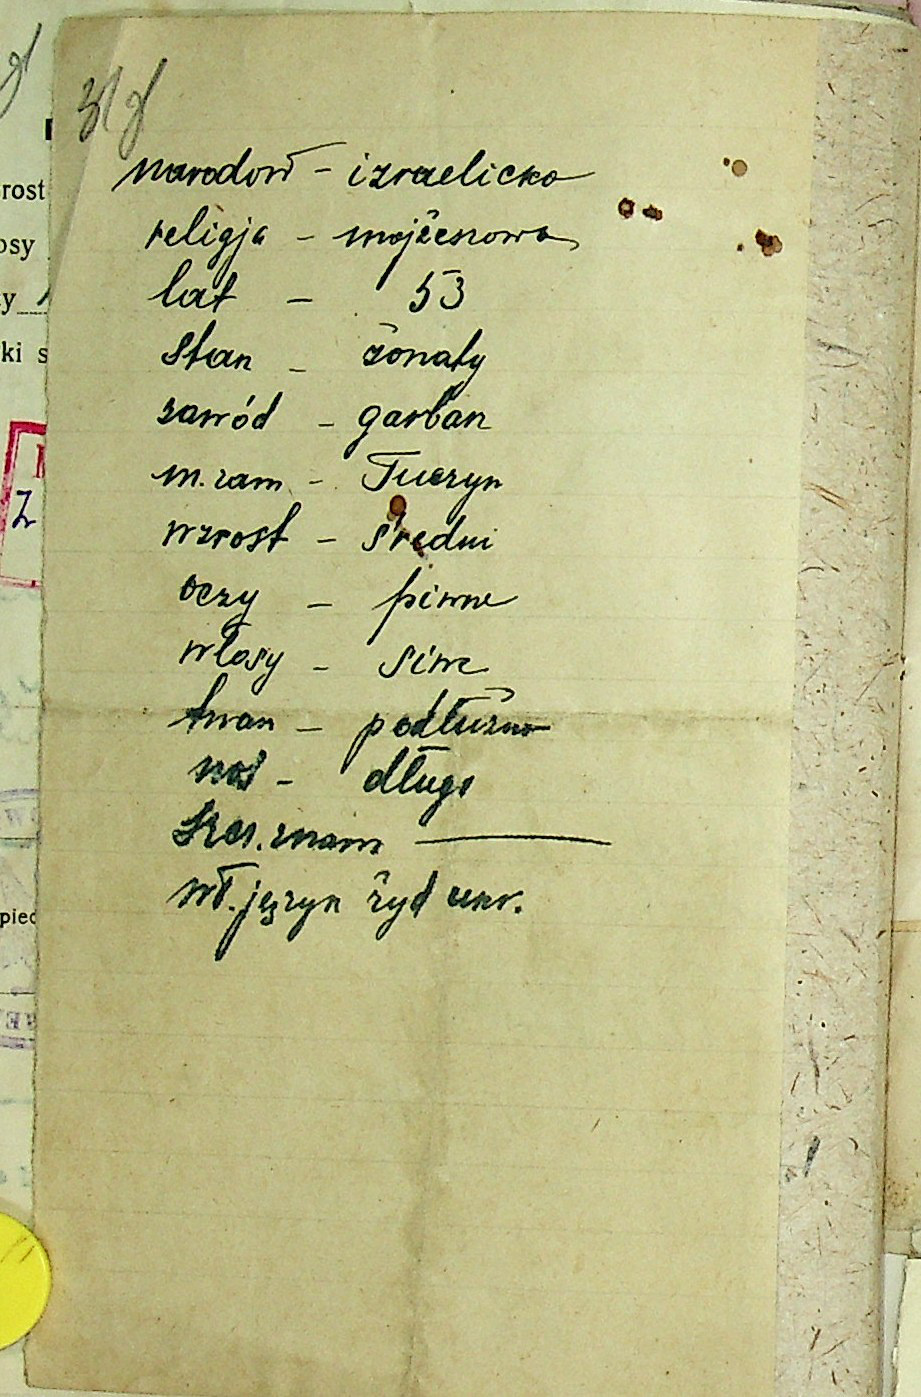 31
narodow - izraelicka
religja - mojżeszowa
lat - 53
stan - żonaty
zawód - garbarz
m. zam - Tuczyn
wzrost - średni
oczy - piwne
włosy - siwe
twarz - podłużna
nos - długi
szcz. znam
wł. język żyd ukr.
rost
osy
y
ki s
Z
pied